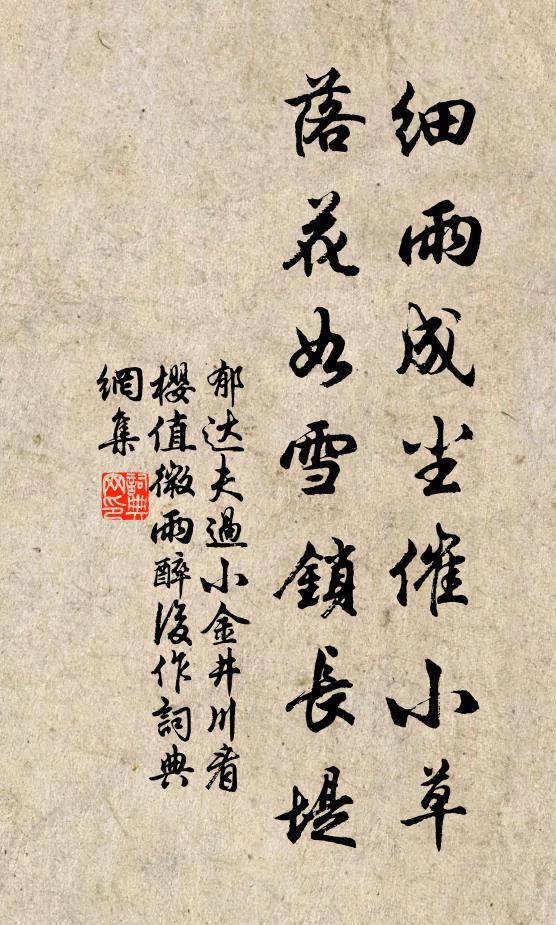 細雨成尘催小草
落花如雪鎖長堤
郁达夫過小金井川看
櫻值微雨醉後作詞典
網集
詞典
网印